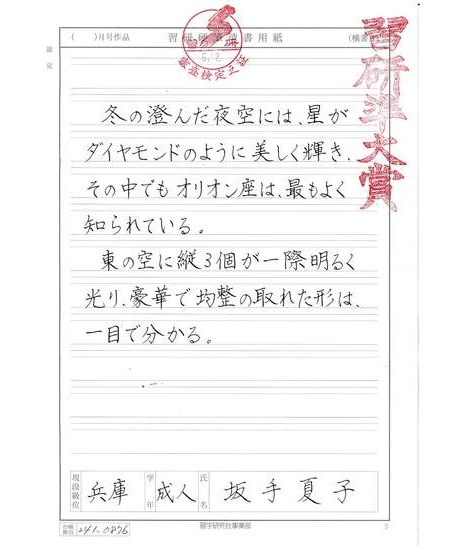 (　)月号作品　習研所　清書用紙　(横書
認定
習研
6.2
審査検定之証
習研準大賞
冬の澄んだ夜空には、星が
ダイヤモンドのように美しく輝き、
その中でもオリオン座は、最もよく
知られている。
東の空に縦3個が一際明るく
光り、豪華で均整の取れた形は、
一目で分かる。
現段級位　兵庫　学年　成人　氏名　坂手夏子
台帳番号　241-0876
習字研究社事業部　5